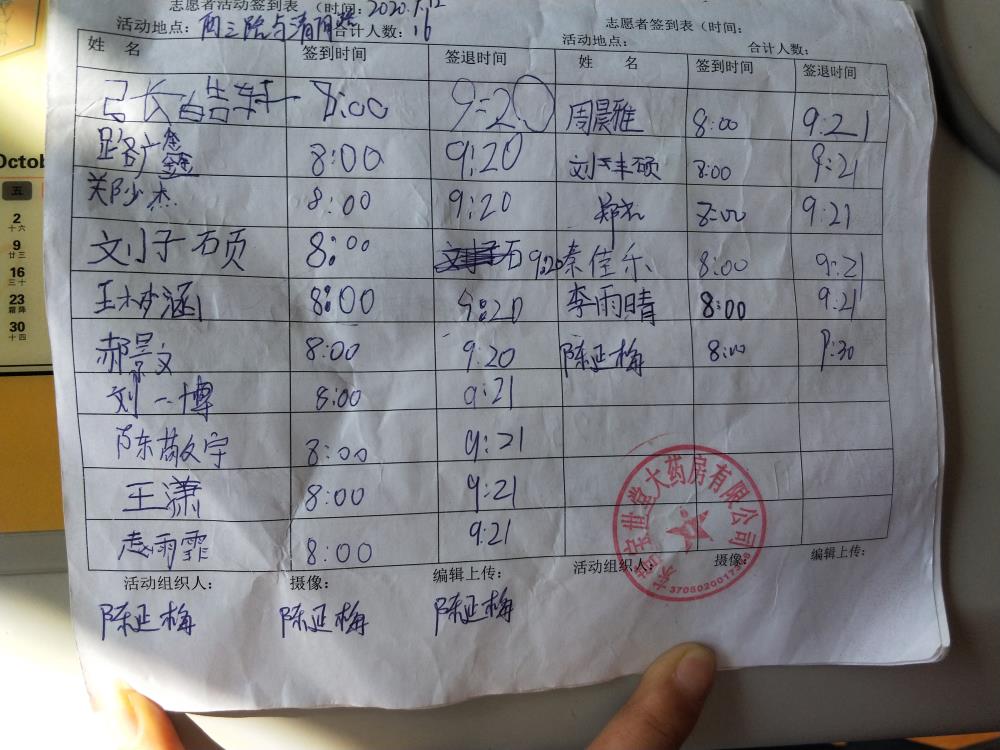 志愿者活动签到表 (时间: 2020.9.12
活动地点: 西三路与清阳路 合计人数: 16
姓 名 签到时间 签退时间
8:00 9:20
路广鑫 8:00 9:20
郑少杰 8:00 9:20
刘子硕 8:00 9:20
王梦涵 8:00 9:20
郝景文 8:00 9:20
刘一博 8:00 9:21
陈敬宇 8:00 9:21
王潇 8:00 9:21
赵雨霏 8:00 9:21
活动组织人: 摄像: 编辑上传:
陈延梅 陈延梅 陈延梅
志愿者签到表 (时间:
活动地点: 合计人数:
姓 名 签到时间 签退时间
周晨雅 8:00 9:21
刘丰硕 8:00 9:21
8:00 9:21
秦佳乐 8:00 9:21
李雨晴 8:00 9:21
陈延梅 8:00 9:30
活动组织人: 摄像: 编辑上传:
宝世堂大药房有限公司
Octob
五
2
十六
9
廿三
16
三十
23
霜降
30
十四